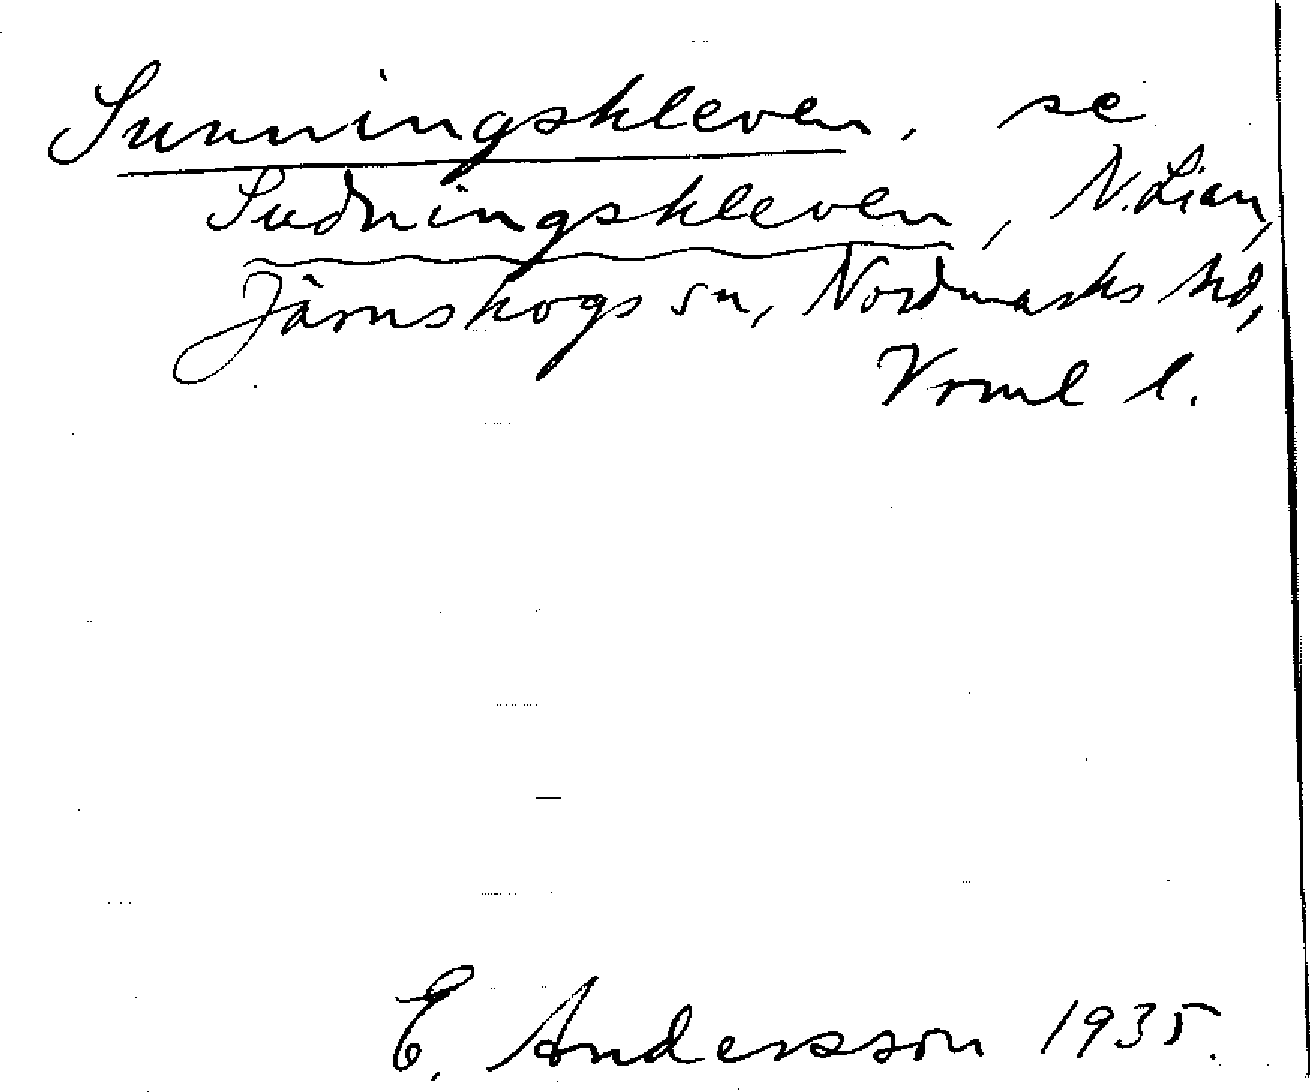 Sunningskleven, se
Sudningskleven, N. Lian,
Järnskogs sn, Nordmarks hd,
Vrml l.
E. Andersson 1935.